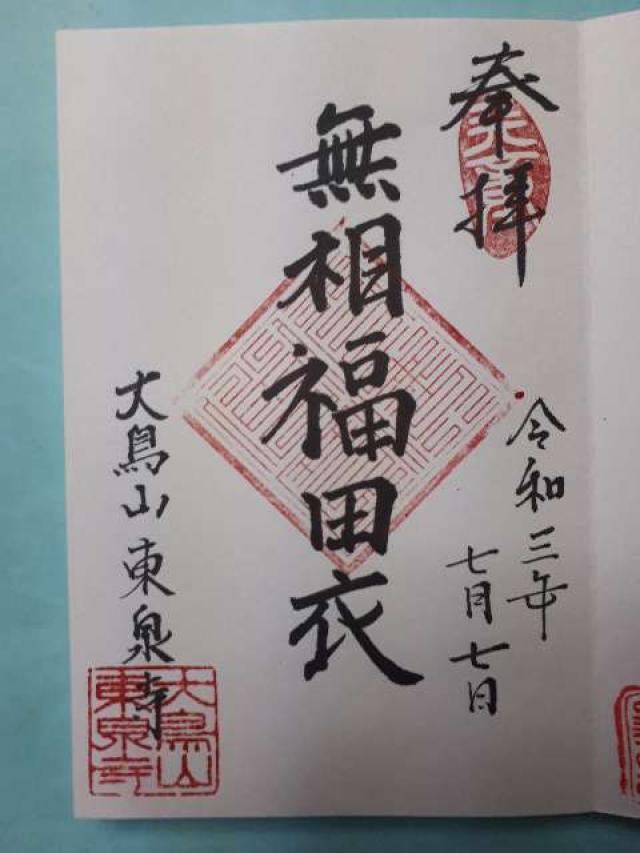 奉拝
令和三年
七月七日
無相福田衣
大鳥山東泉寺
大鳥山
東泉寺